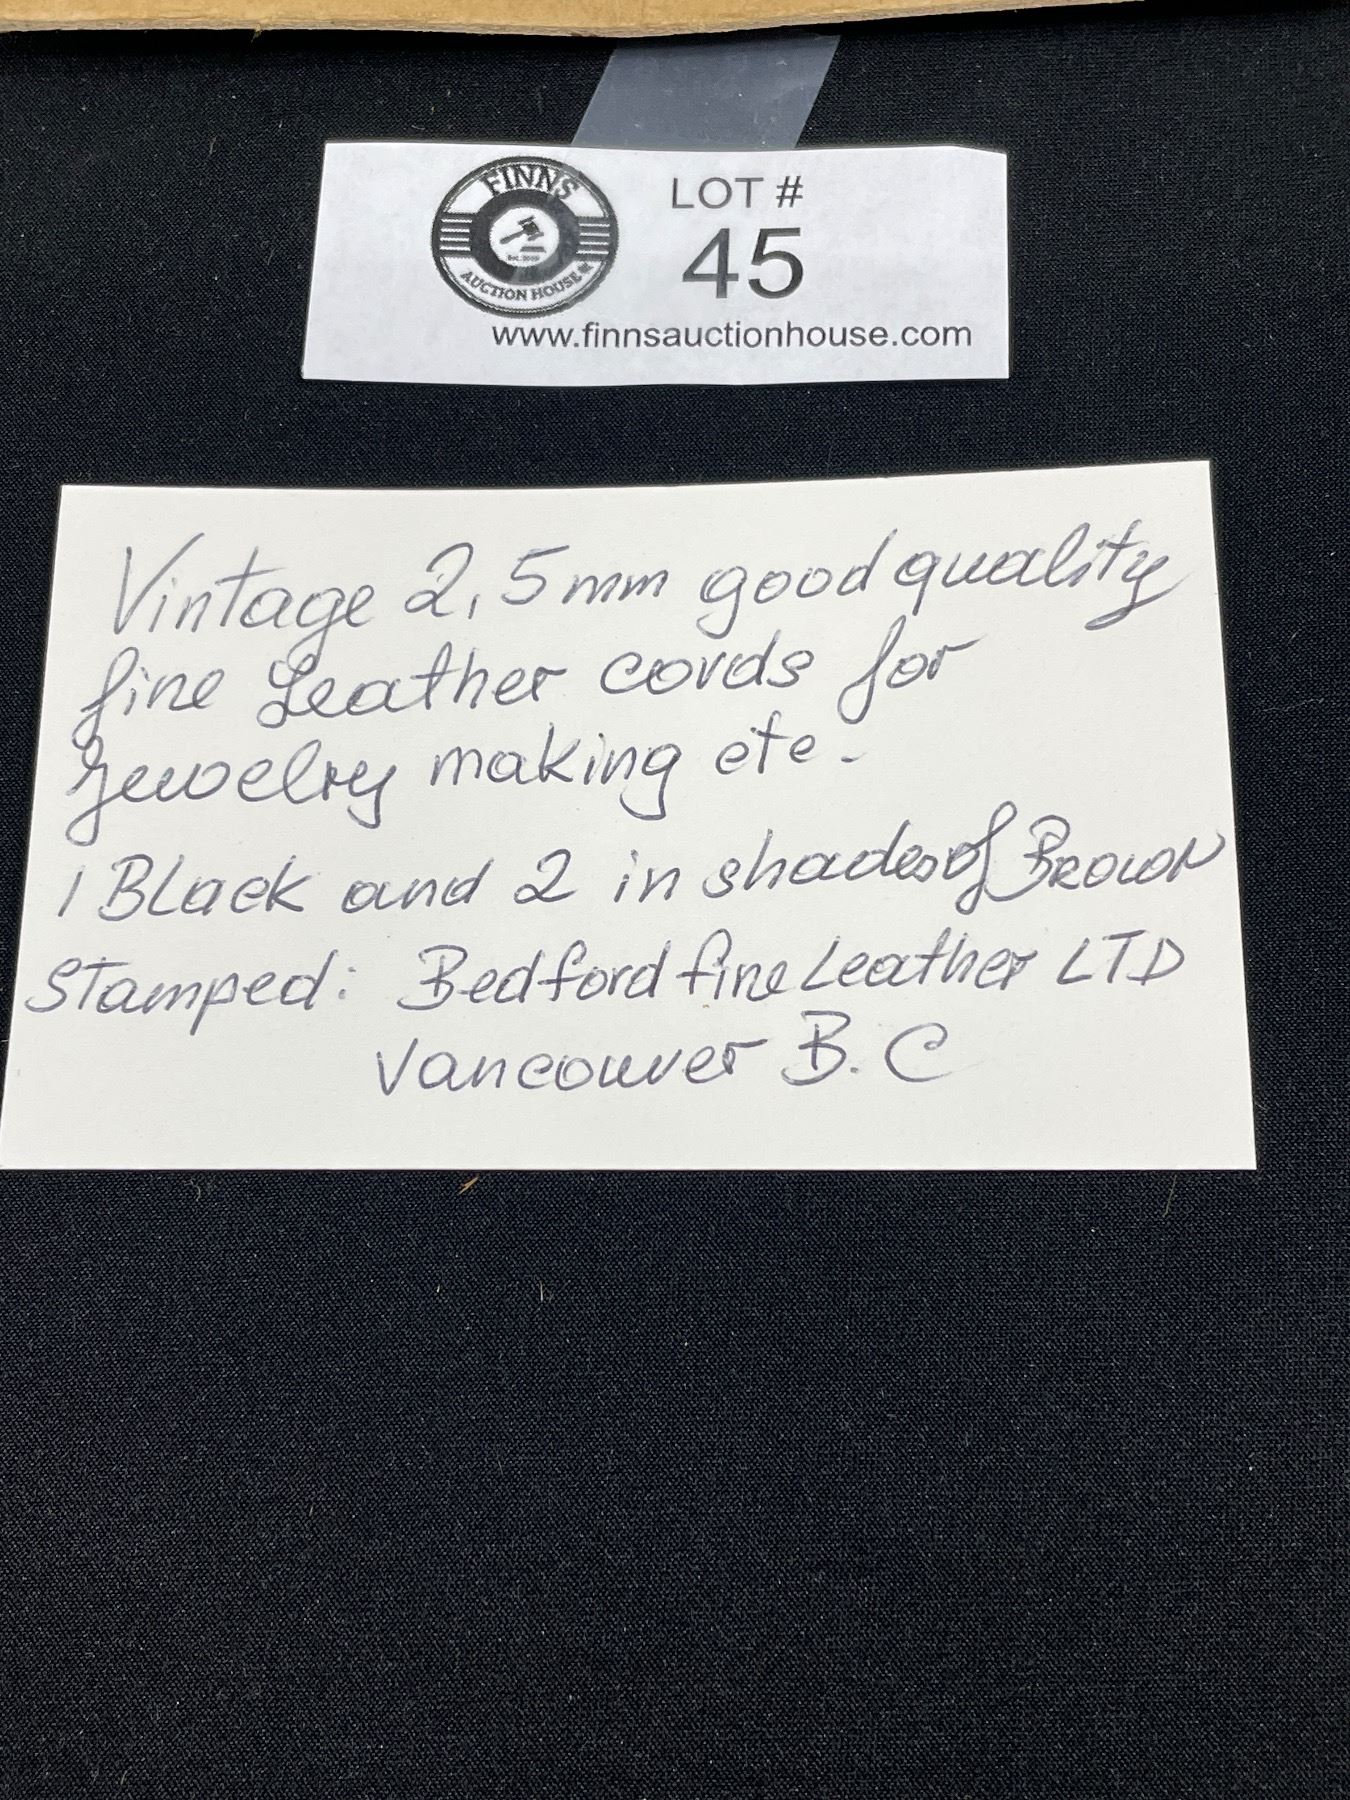 FINNS
AUCTION HOUSE
LOT #
45
www.finnsauctionhouse.com
Vintage 2,5mm good quality
fine Leather cords for
Jewelry making etc.
1 Black and 2 in shades of Brown
Stamped: Bedford fine Leather LTD
Vancouver B.C